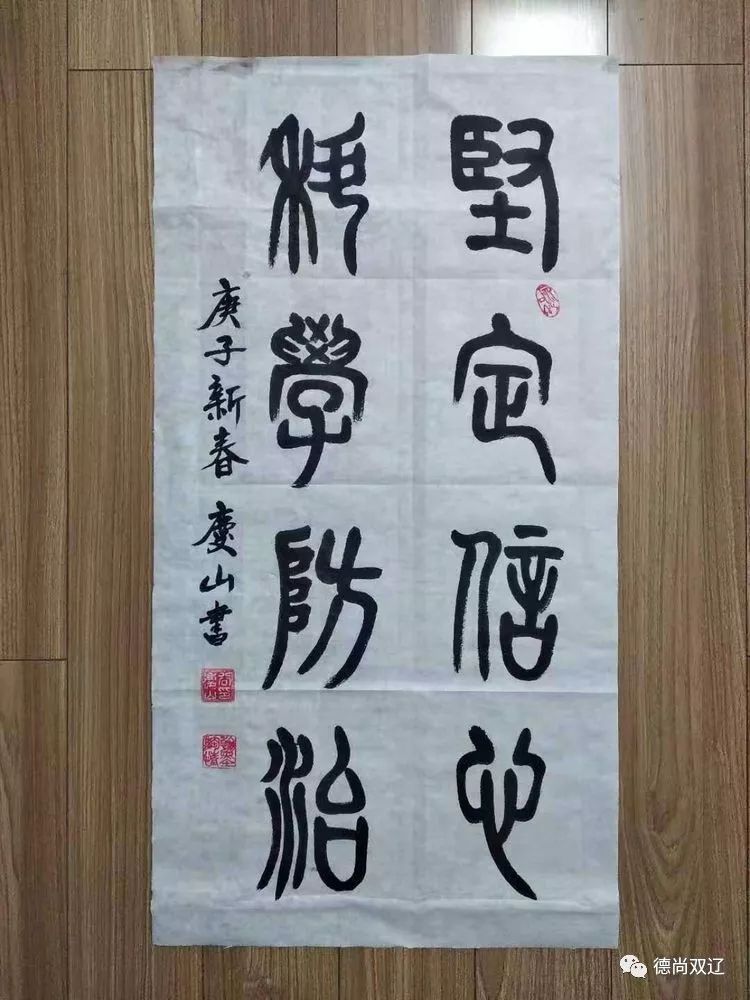 堅定信心
科學防治
庚子新春 慶山書
德尚双辽